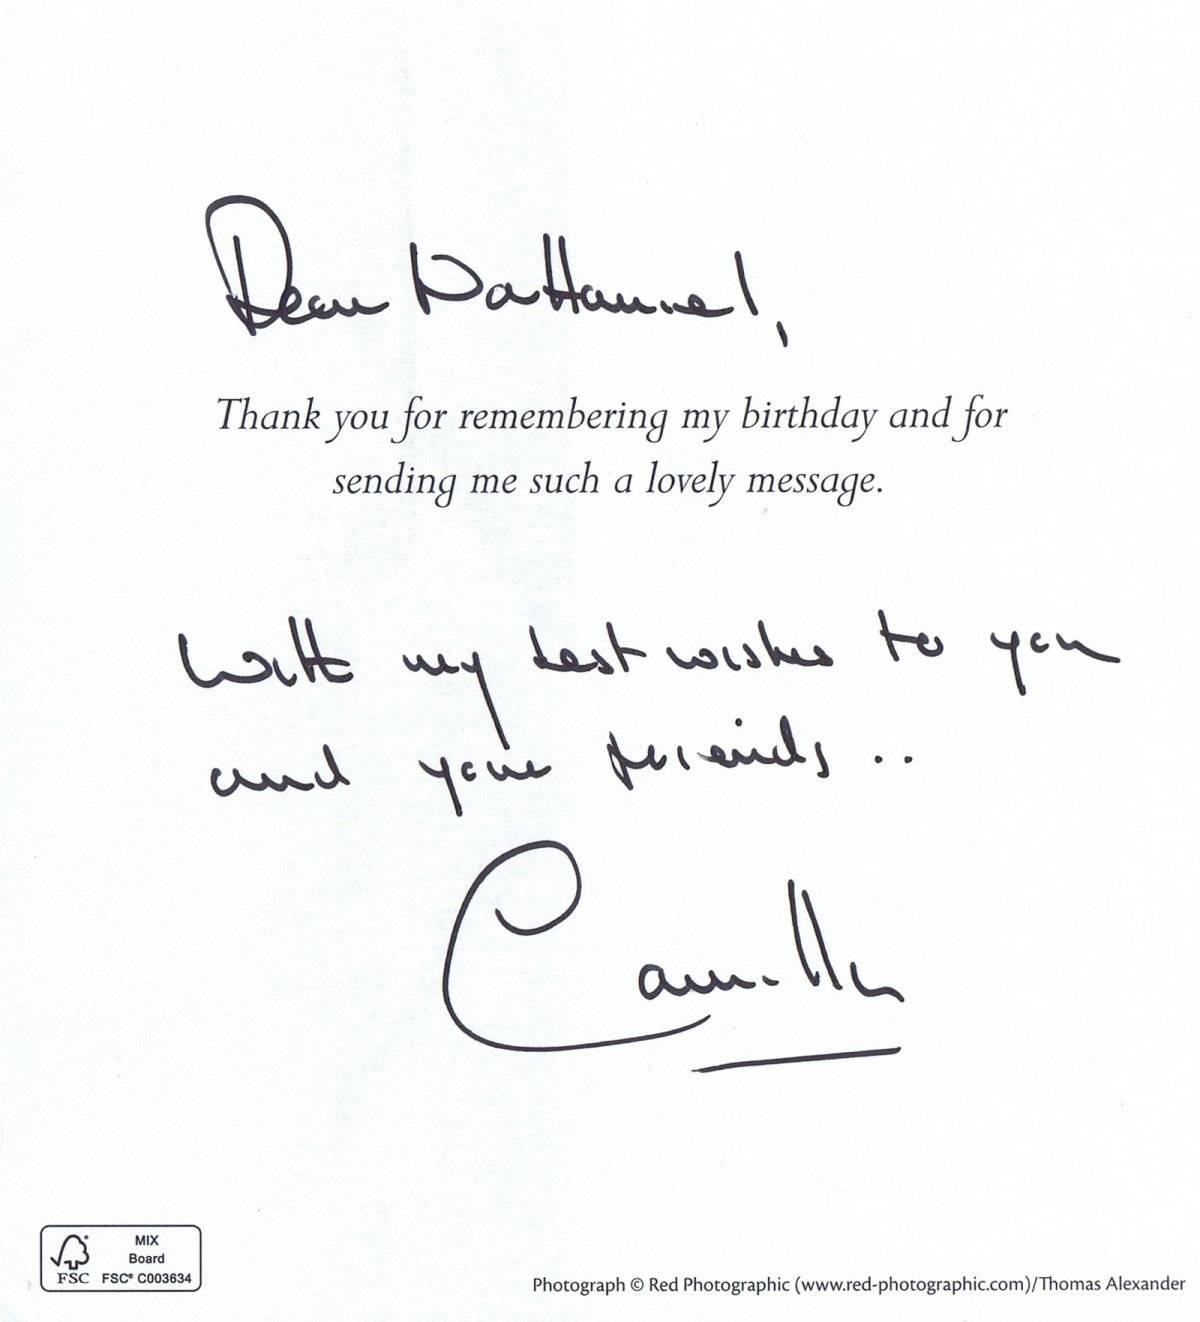 Dear Nathaniel,
Thank you for remembering my birthday and for
sending me such a lovely message.
With my best wishes to you
and your friends ..
Camilla
MIX
Board
FSC FSC® C003634
Photograph © Red Photographic (www.red-photographic.com)/Thomas Alexander